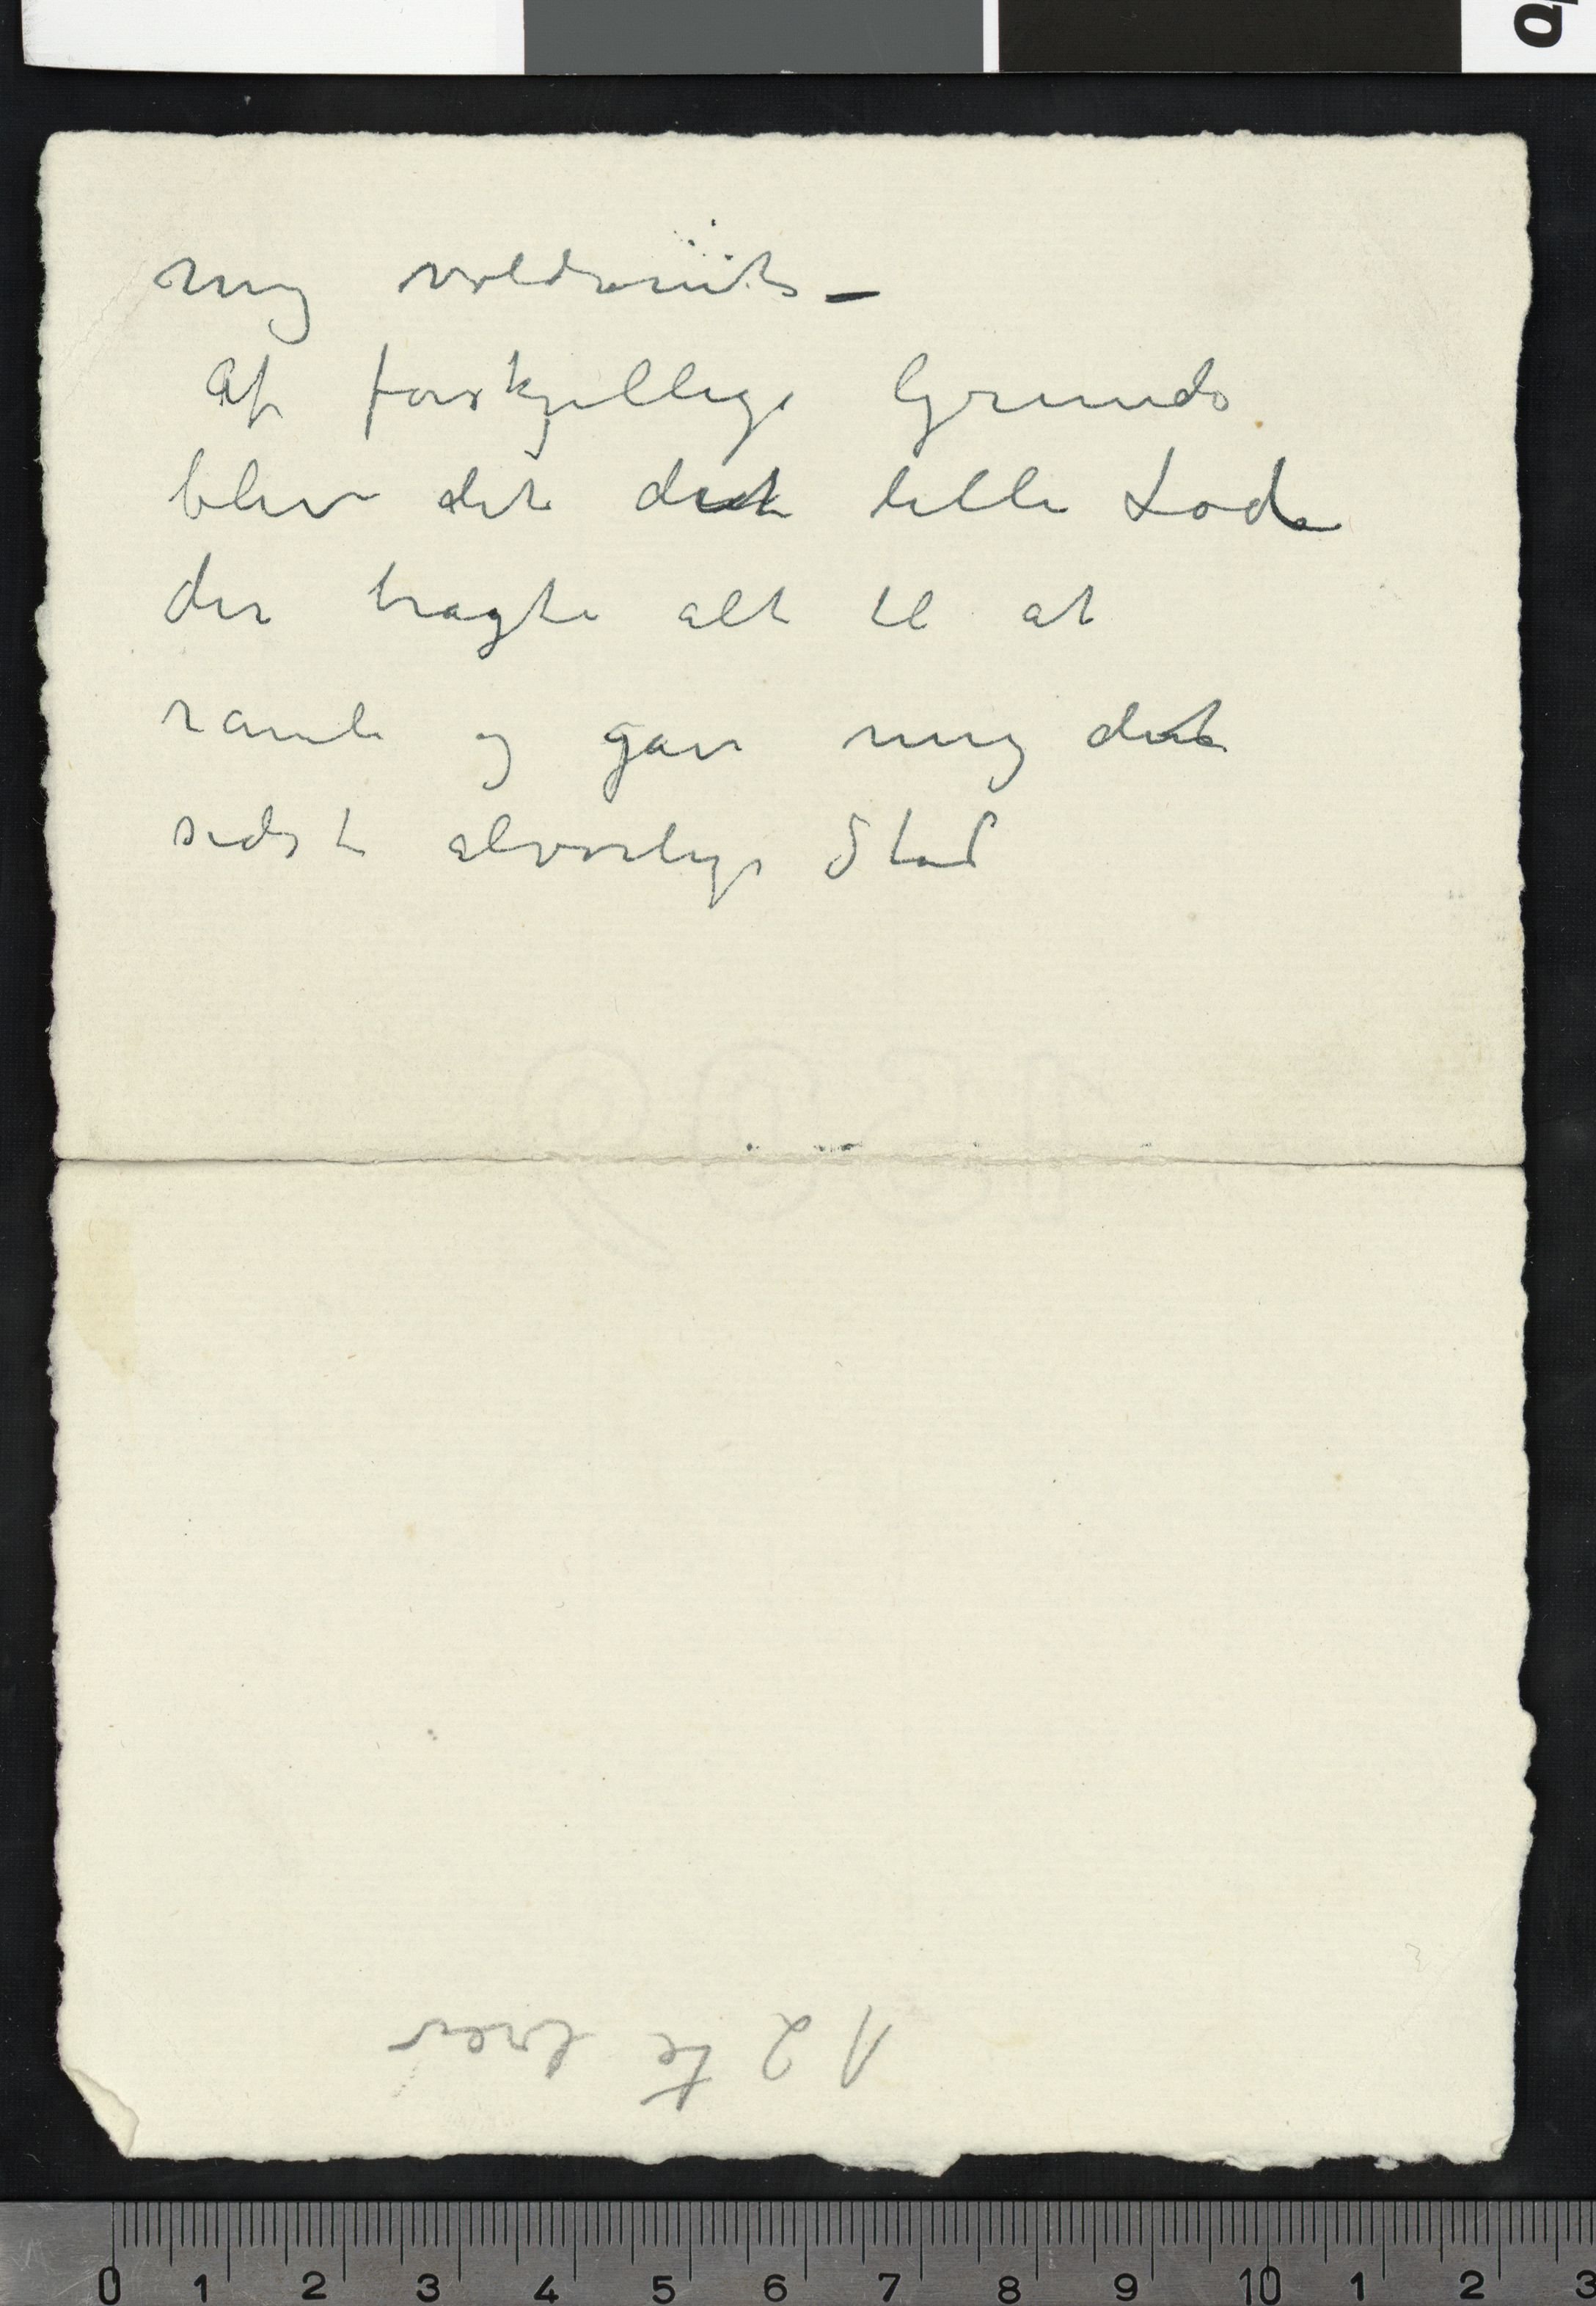 mig voldsomt –
Af forskjellige Grunde
blev det det lille Lod
der bragte alt til at
ramle og gav mig det
sidste alvorlige Stød
12te brev